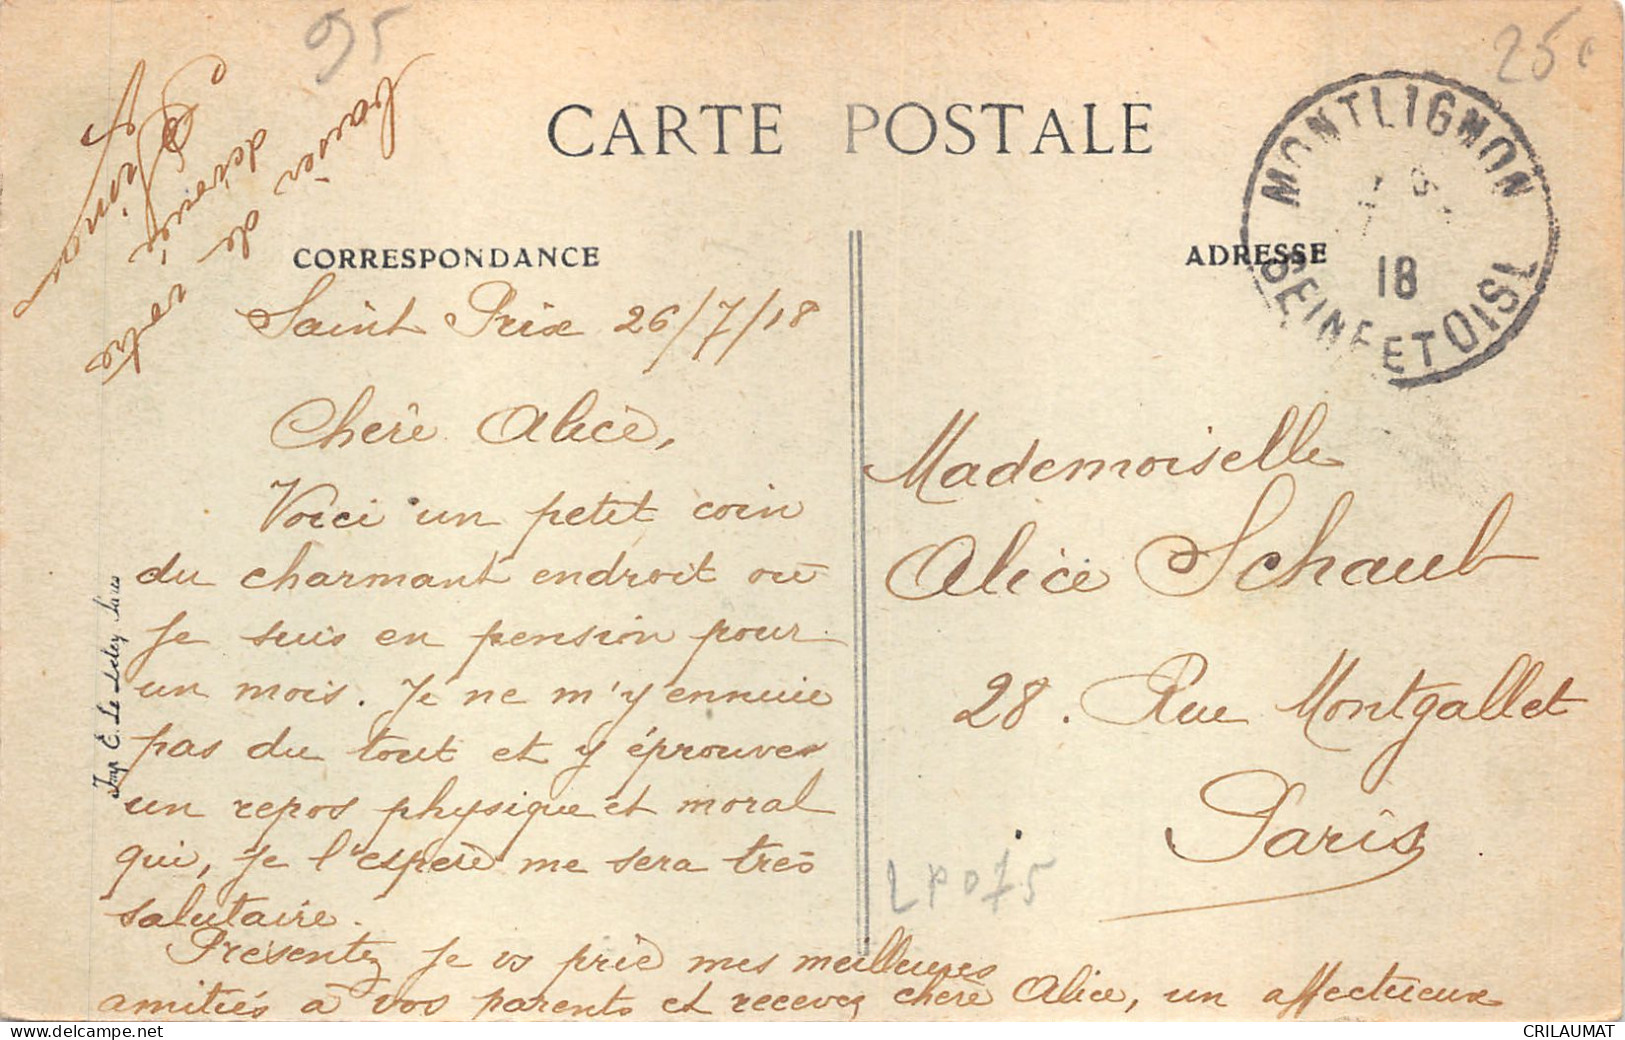 95
25 c
CARTE POSTALE
MONTLIGNON
18
SEINE ET OISE
CORRESPONDANCE
ADRESSE
Saint Prix 26/7/18
Chère Alice,
Voici un petit coin
du charmant endroit où
je suis en pension pour
un mois. Je ne m'y ennuie
pas du tout et y éprouve
un repos physique et moral
qui, je l'espère me sera très
salutaire.
Présentez je vs prie mes meilleures
amitiés à vos parents et recevez chère Alice, un affectueux
baiser de votre
dévouée
Mademoiselle
Alice Schaub
28. Rue Montgallet
Paris
LP075
Imp. E. Le Deley, Paris
CRILAUMAT